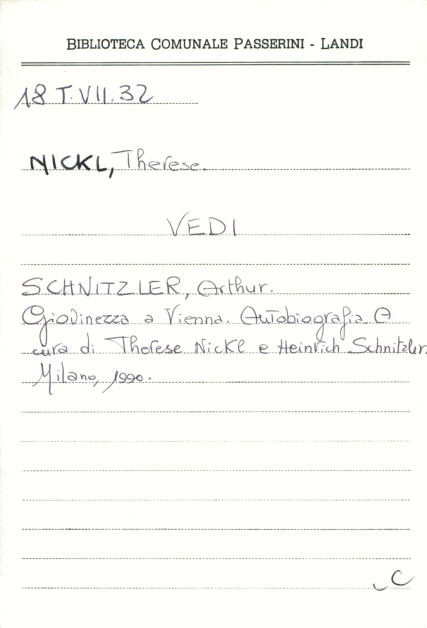 BIBLIOTECA COMUNALE PASSERINI - LANDI
18 T.VII.32
NICKL, Therese.
VEDI
SCHNITZLER, Arthur.
Giovinezza a Vienna. Autobiografia. A
cura di Therese Nickl e Heinrich Schnitzler.
Milano, 1990.
C